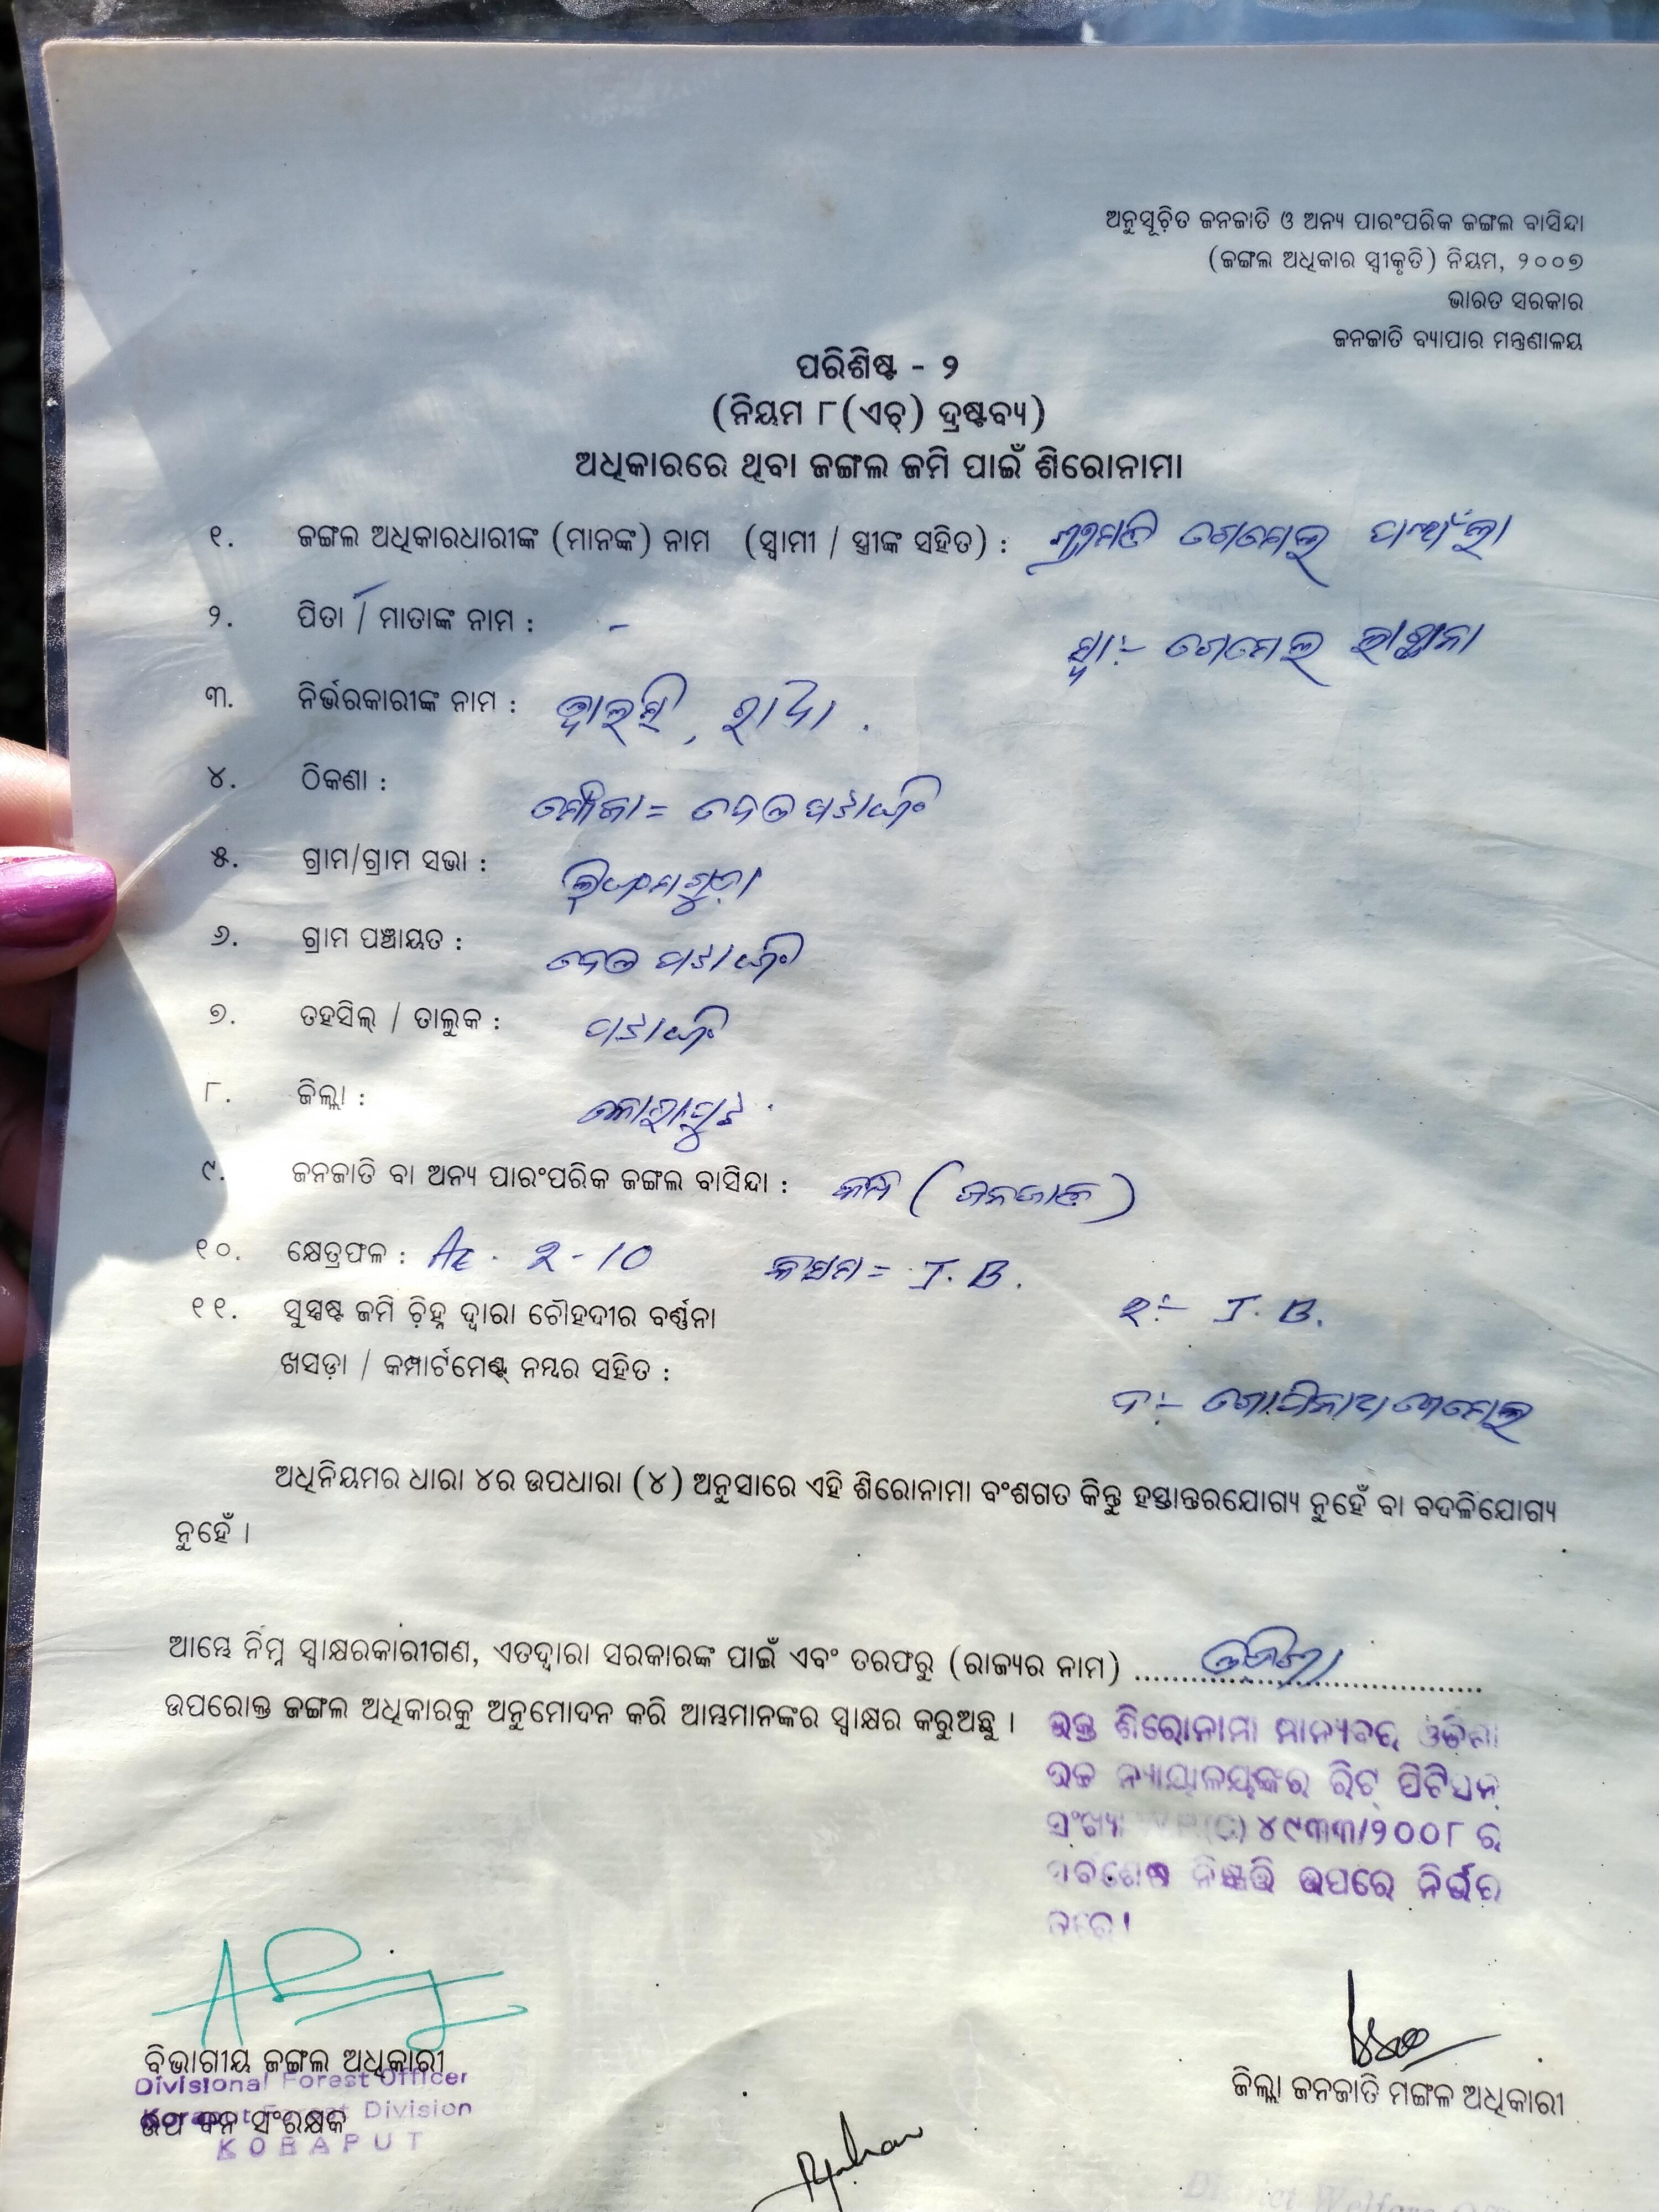 ଅନୁସୂଚିତ ଜନଜାତି ଓ ଅନ୍ୟ ପାରଂପରିକ ଜଙ୍ଗଲ ବାସିନ୍ଦା
(ଜଙ୍ଗଲ ଅଧିକାର ସ୍ୱୀକୃତି) ନିୟମ, ୨୦୦୭
ଭାରତ ସରକାର
ଜନଜାତି ବ୍ୟାପାର ମନ୍ତ୍ରଣାଳୟ
ପରିଶିଷ୍ଟ - ୨
(ନିୟମ ୮(ଏଚ୍) ଦ୍ରଷ୍ଟବ୍ୟ)
ଅଧିକାରରେ ଥିବା ଜଙ୍ଗଲ ଜମି ପାଇଁ ଶିରୋନାମା
୧. ଜଙ୍ଗଲ ଅଧିକାରଧାରୀଙ୍କ (ମାନଙ୍କ) ନାମ (ସ୍ୱାମୀ / ସ୍ତ୍ରୀଙ୍କ ସହିତ) : ଶ୍ରୀମତି ଗେମେଲ
୨. ପିତା / ମାତାଙ୍କ ନାମ : -
ସ୍ୱା:- ଗେମେଲ
୩. ନିର୍ଭରକାରୀଙ୍କ ନାମ :
୪. ଠିକଣା : ମୌଜା = ଦେଓପଟାଙ୍ଗି
୫. ଗ୍ରାମ/ଗ୍ରାମ ସଭା :
୬. ଗ୍ରାମ ପଞ୍ଚାୟତ : ଦେଓପଟାଙ୍ଗି
୭. ତହସିଲ୍ / ତାଲୁକ : ପଟାଙ୍ଗି
୮. ଜିଲ୍ଲା : କୋରାପୁଟ
୯. ଜନଜାତି ବା ଅନ୍ୟ ପାରଂପରିକ ଜଙ୍ଗଲ ବାସିନ୍ଦା : କନ୍ଧ (ଜନଜାତି)
୧୦. କ୍ଷେତ୍ରଫଳ : Ac. 2-10 କିସମ = J.B.
୧୧. ସୁସ୍ପଷ୍ଟ ଜମି ଚିହ୍ନ ଦ୍ୱାରା ଚୌହଦୀର ବର୍ଣ୍ଣନା
ଉ:- J.B.
ଖସଡ଼ା / କମ୍ପାର୍ଟମେଣ୍ଟ ନମ୍ବର ସହିତ :
ଦ:- ଗୋପିନାଥ ଗେମେଲ
ଅଧିନିୟମର ଧାରା ୪ର ଉପଧାରା (୪) ଅନୁସାରେ ଏହି ଶିରୋନାମା ବଂଶଗତ କିନ୍ତୁ ହସ୍ତାନ୍ତରଯୋଗ୍ୟ ନୁହେଁ ବା ବଦଳିଯୋଗ୍ୟ
ନୁହେଁ ।
ଆମ୍ଭେ ନିମ୍ନ ସ୍ୱାକ୍ଷରକାରୀଗଣ, ଏତଦ୍ୱାରା ସରକାରଙ୍କ ପାଇଁ ଏବଂ ତରଫରୁ (ରାଜ୍ୟର ନାମ) ଓଡିଶା
ଉପରୋକ୍ତ ଜଙ୍ଗଲ ଅଧିକାରକୁ ଅନୁମୋଦନ କରି ଆମ୍ଭମାନଙ୍କର ସ୍ୱାକ୍ଷର କରୁଅଛୁ ।
ଉକ୍ତ ଶିରୋନାମା ମାନ୍ୟବର ଓଡିଶା
ଉଚ୍ଚ ନ୍ୟାୟାଳୟଙ୍କର ରିଟ୍ ପିଟିସନ୍
ସଂଖ୍ୟା (C) ୪୯୩୩/୨୦୦୮ ର
ସର୍ବଶେଷ ନିଷ୍ପତ୍ତି ଉପରେ ନିର୍ଭର
କରେ ।
ବିଭାଗୀୟ ଜଙ୍ଗଲ ଅଧିକାରୀ
Divisional Forest Officer
Koraput Forest Division
ଉପ ବନ ସଂରକ୍ଷକ
KORAPUT
ଜିଲ୍ଲା ଜନଜାତି ମଙ୍ଗଳ ଅଧିକାରୀ
District Welfare